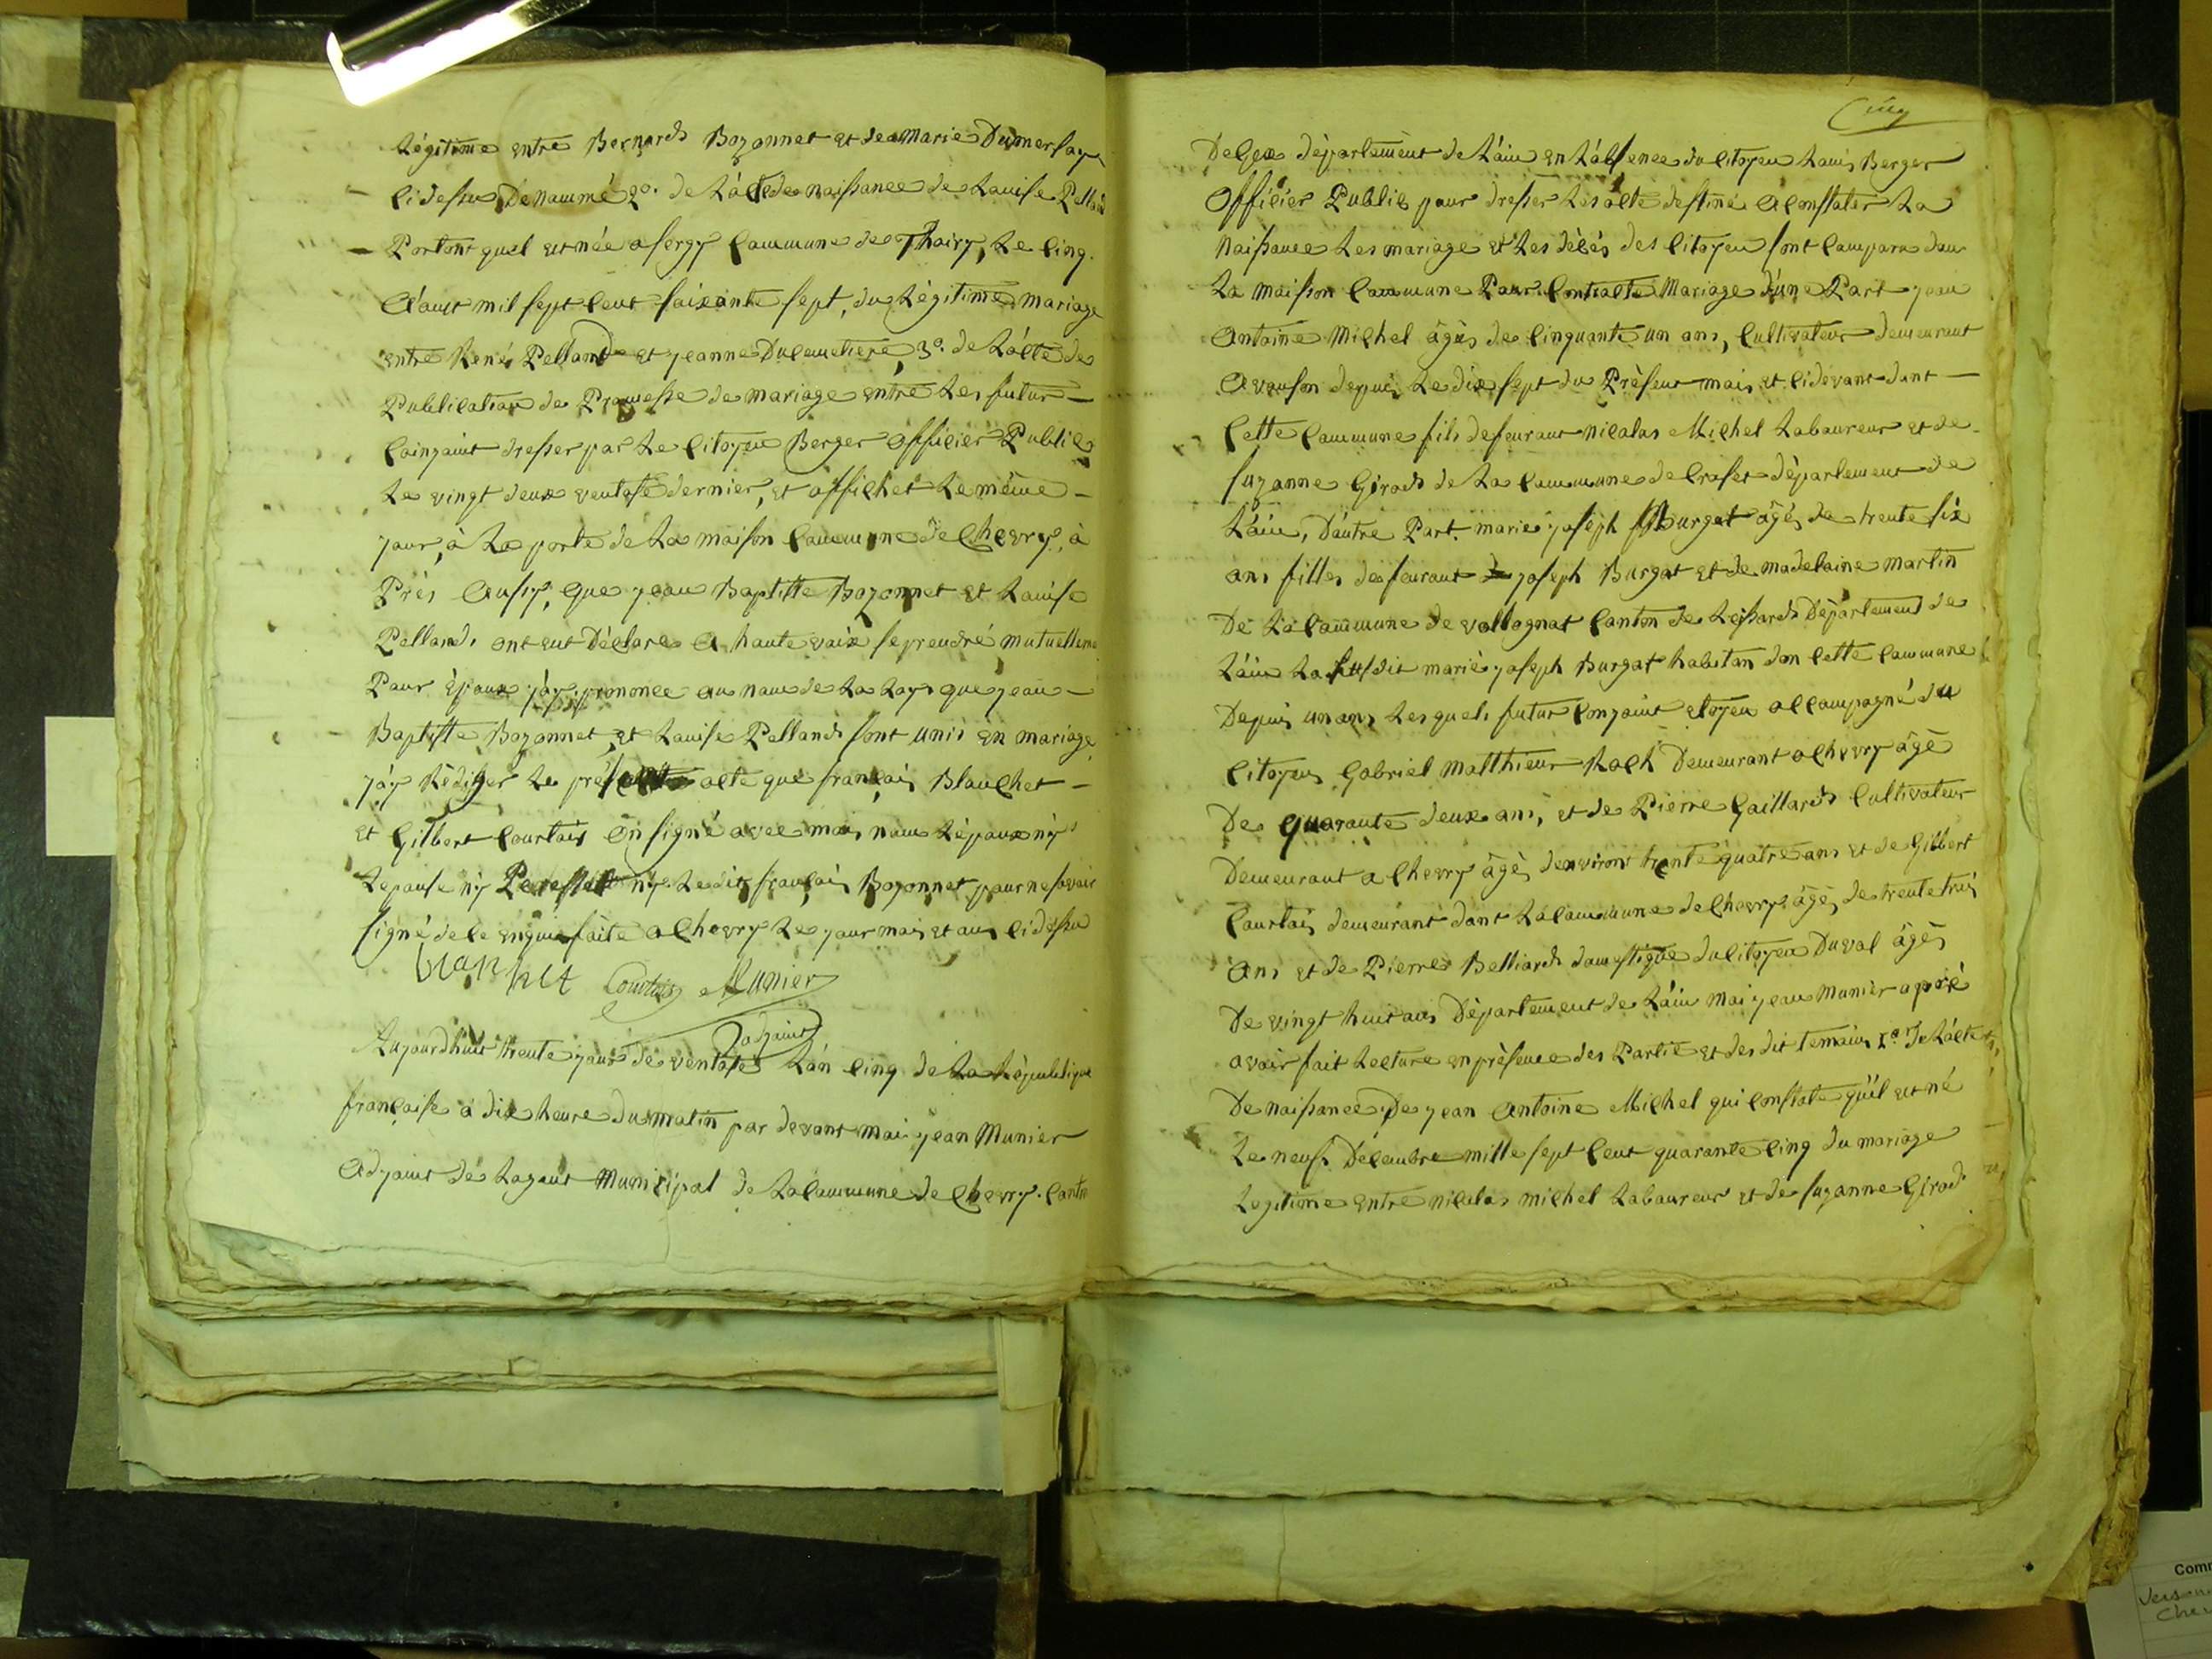 Légitime entre Bernard Bozonnet et de Marie Dumersay
cidessu Dénaumé 2o. de Lácte de naissance de Lauise Pelland
Portont quel est née a sergy Caummune de Thoiry, Le cinq
D'aust mil sept cent saixante sept, du Légitime mariage
entre René Pelland et jeanne Ducemetiere, 3o. de Lácte de
Publication de Promesse de mariage entre Les futur
Coinjoint dresser par Le Citoyen Berger officier Public
Le vingt deux ventose dernier, et affichet Le même
jour, à La porte de La maison Caummune de Chevry, à
Près Aussy, que jean Baptiste Bozonnet et Lauise
Pelland, ont eut Déclare A haute vaix se prendré mutuelleme
Paur èpaux j'áy prononce au nam de La Loy que jean
Baptiste Bozonnet, et Lauise Pelland sont unis en mariage
j'áy Rèdiger Le présent acte que françois Blanchet
et Gilbert Courtois on signé avec moi, nam Lépaux ny
Lepause ny ny Ledit françois Bozonnet, pour ne savoir
signé de ce enquis faite a Chevry Le jour mois et an cidessu
Blanhet Courtois Munier
adjaint
Aujourdhuit trente jour de ventose Lán cinq de La République
françaisse à dix heure du matin par devant moi jean Munier
Adjaint de Lagent Municipal de La Caummune de Chevry. Canton
Cinq
De Gex département de Láin en Lábsence du Citoyen Louis Berger
Officier Public pour dresser Les acte destiné A constater La
Naissance Les mariage et Les dècès des Citoyen sont Campara dan
La Maison Caummune Paur Contracte Mariage d'une Part jean
Antoine Michel âgés de Cinquante un ans, Cultivateur demeurant
A depui, Le dix sept du Prèsent mois et cidevant dant
Cette Caummune fils defeuraut nicolas Michel Labaureur et de
suzanne Girod de La Caummune de Craset département de
Láin, Dáutre Part. marie joseph Burgat âgé, de trente six
ans filles de feuraut joseph Burgat et de madelaine martin
De La Cammune de volognat Canton de Leissard Département de
Láin La susdit marie joseph Burgat habitan dan Cette Caummune
Depuis un ans, Lesquels futur Conjoint citoyen accompagné du
Citoyen Gabriel Matthieur Roch Demeurant a chevry âgè
De quarante deux ans, et de Pierre Gaillard Cultivateur
Demeurant a Chevry âgè, denviront trente quatre ans et de Gilbert
Courtois demeurant dant La Caummune de Chevry âgè, de trente trois
Ans et de Pierre Belliard damestique du Citoyen Duval âgès
De vingt huit ans Département de Láin Moi jean Munier après
avoir fait Lecture en prèsence des Partie et des dit temain, 1o. De Lácte
De naissance De jean Antoine Michel qui constate qu'il est né
Le neuf Décembre mille sept cent quarante cinq du mariage
Legitime entre nicolas michel Labaureur et de suzanne Girod